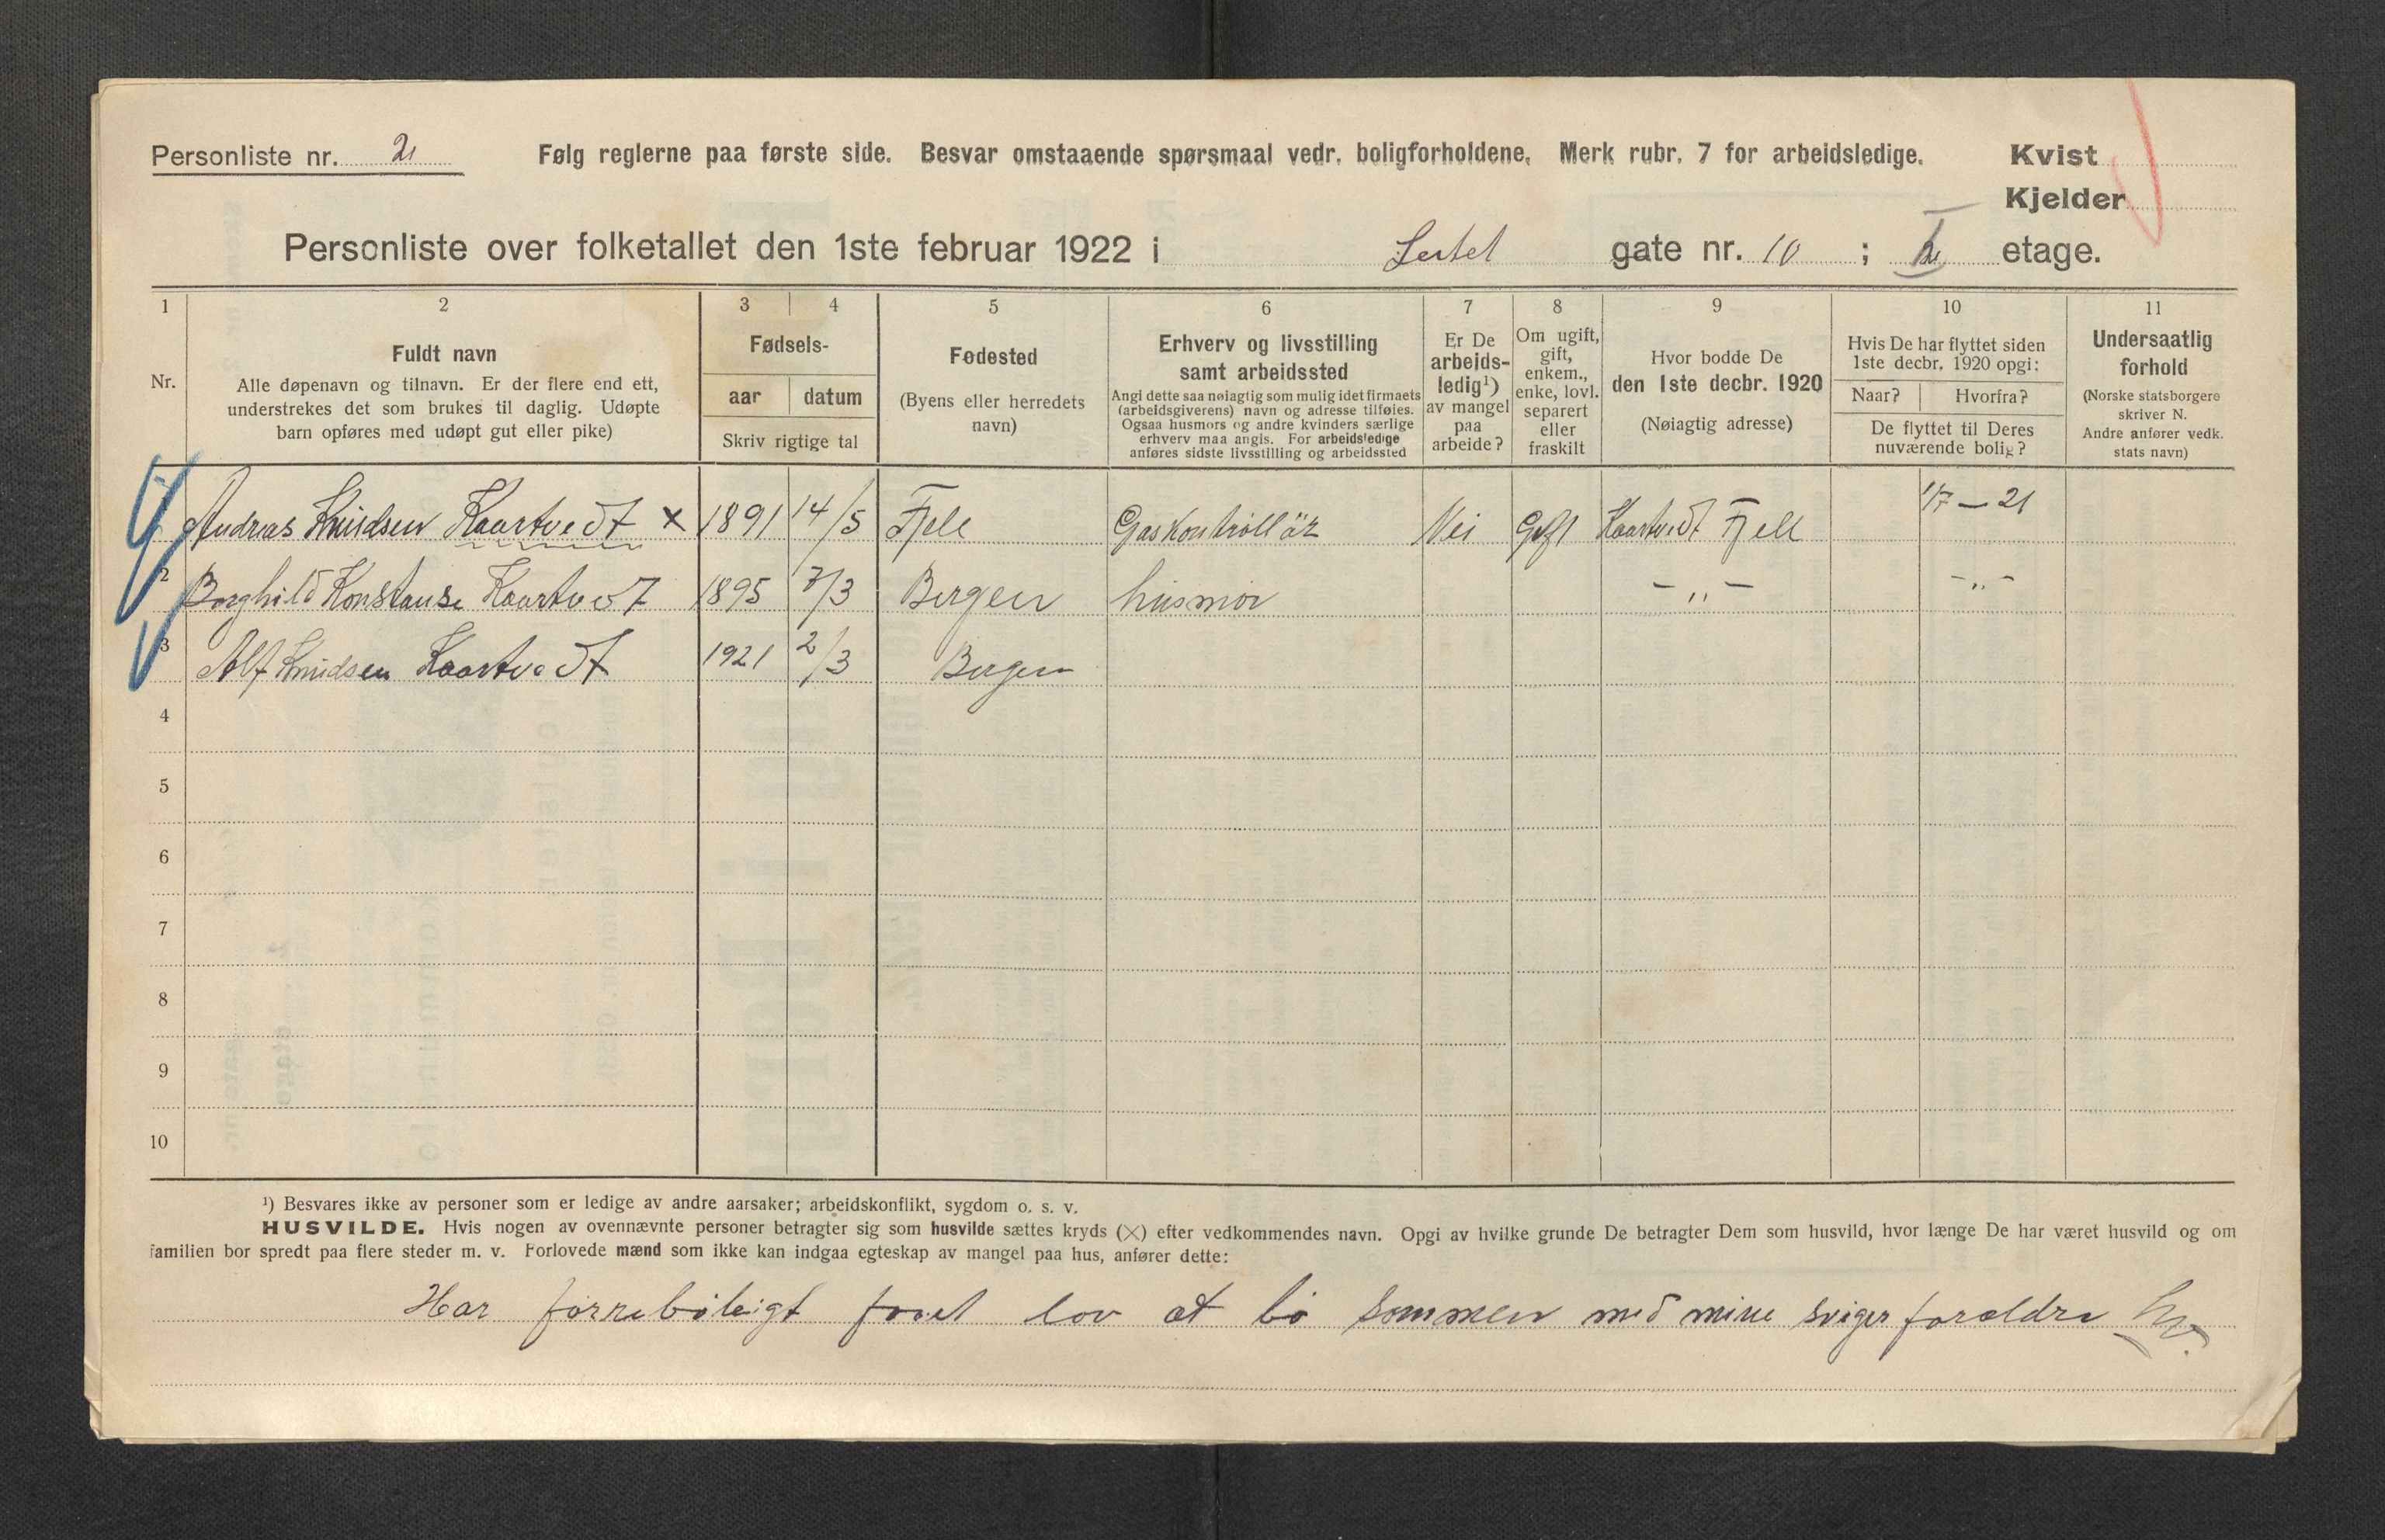 Personliste nr. 2
Følg reglerne paa første side. Besvar omstaaende spørsmaal vedr. boligforholdene. Merk rubr. 7 for arbeidsledige.
Kvist
Kjelder
Personliste over folketallet den 1ste februar 1922 i gate nr. 10 ; etage.
1 2 3 4 5 6 7 8 9 10 11
Nr.
Fuldt navn
Alle døpenavn og tilnavn. Er der flere end ett,
understrekes det som brukes til daglig. Udøpte
barn opføres med udøpt gut eller pike)
Fødsels-
aar datum
Skriv rigtige tal
Fødested
(Byens eller herredets
navn)
Erhverv og livsstilling
samt arbeidssted
Angi dette saa nøiagtig som mulig idet firmaets
(arbeidsgiverens) navn og adresse tilføies.
Ogsaa husmors og andre kvinders særlige
erhverv maa angis. For arbeidsledige
anføres sidste livsstilling og arbeidssted
Er De
arbeids-
ledig¹)
av mangel
paa
arbeide?
Om ugift,
gift,
enkem.,
enke, lovl.
separert
eller
fraskilt
Hvor bodde De
den 1ste decbr. 1920
(Nøiagtig adresse)
Hvis De har flyttet siden
1ste decbr. 1920 opgi:
Naar? Hvorfra?
De flyttet til Deres
nuværende bolig?
Undersaatlig
forhold
(Norske statsborgere
skriver N.
Andre anfører vedk.
stats navn)
Andreas Knudsen Kaartvedt × 1891 14/5 Fjell Gaskontrollär Nei Gift Kaartvedt Fjell 1/7 — 21
2 Borghild Konstanse Kaartvedt 1895 7/3 Bergen husmor — „ — — „ —
3 Alf Knudsen Kaartvedt 1921 2/3 Bergen
4
5
6
7
8
9
10
¹) Besvares ikke av personer som er ledige av andre aarsaker; arbeidskonflikt, sygdom o. s. v.
HUSVILDE. Hvis nogen av ovennævnte personer betragter sig som husvilde sættes kryds (×) efter vedkommendes navn. Opgi av hvilke grunde De betragter Dem som husvild, hvor længe De har været husvild og om
familien bor spredt paa flere steder m. v. Forlovede mænd som ikke kan indgaa egteskap av mangel paa hus, anfører dette:
Har förreböleigt faaet lov at bo sammen med mine sviger foraldre